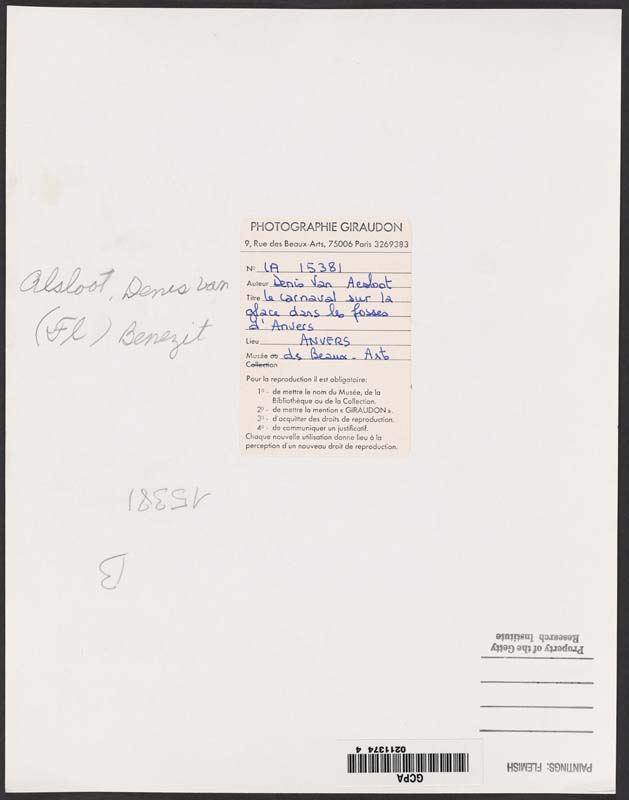 PHOTOGRAPHIE GIRAUDON
9, Rue des Beaux-Arts, 75006 Paris 3269383
N° LA 15381
Auteur Denis Van Aesloot
Titre le carnaval sur la
glace dans les fosses
d'Anvers
Lieu ANVERS
Musée ou ds Beaux-Arts
Collection
Pour la reproduction il est obligatoire:
1° - de mettre le nom du Musée, de la
Bibliothèque ou de la Collection.
2° - de mettre la mention « GIRAUDON ».
3° - d'acquitter des droits de reproduction.
4° - de communiquer un justificatif.
Chaque nouvelle utilisation donne lieu à la
perception d'un nouveau droit de reproduction.
Alsloot, Denis van
(Fl) Benezit
15381
B
Property of the Getty
Research Institute
PAINTINGS: FLEMISH
GCPA
0211374 4